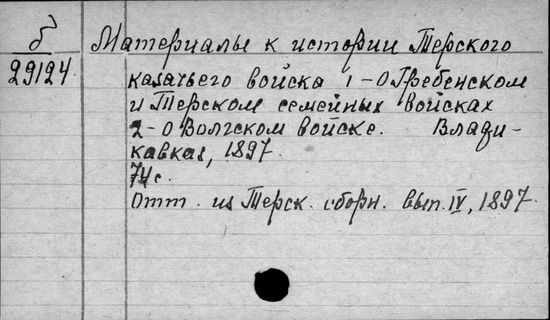 б
29124
Материалы к истории Терского
казачьего войска 1-О Гребенском
и Терском семейных войсках
2-О Волгском войске. Влади-
кавказ, 1897.
74 с.
Отт. из Терск. сборн. вып. IV, 1897.